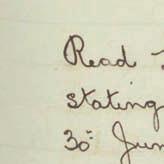 Read
stating
30 Jun